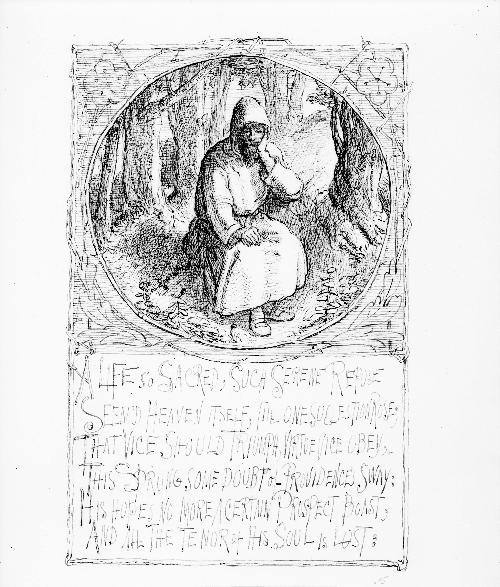 A LIFE SO SACRED, SUCH SERENE REPOSE
SEEM'D HEAVEN ITSELF, TILL ONE SUGGESTION ROSE;
THAT VICE SHOULD TRIUMPH, VIRTUE VICE OBEY,
THIS SPRUNG SOME DOUBT OF PROVIDENCE'S SWAY:
HIS HOPES NO MORE A CERTAIN PROSPECT BOAST,
AND ALL THE TENOR OF HIS SOUL IS LOST: